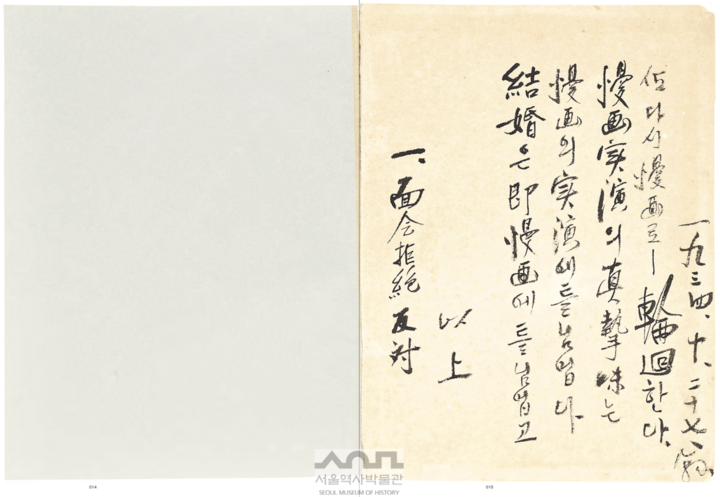 一、面会拒絶 反対
以上
結婚은 即 慢画에틀님업고
慢画의 実演에틀님업다
慢画実演의 真摯味는
ᄯᅩ다시 慢画로ㅣ 輪廻한다.
一九三四、十、二十七、
서울역사박물관
SEOUL MUSEUM OF HISTORY
014
015